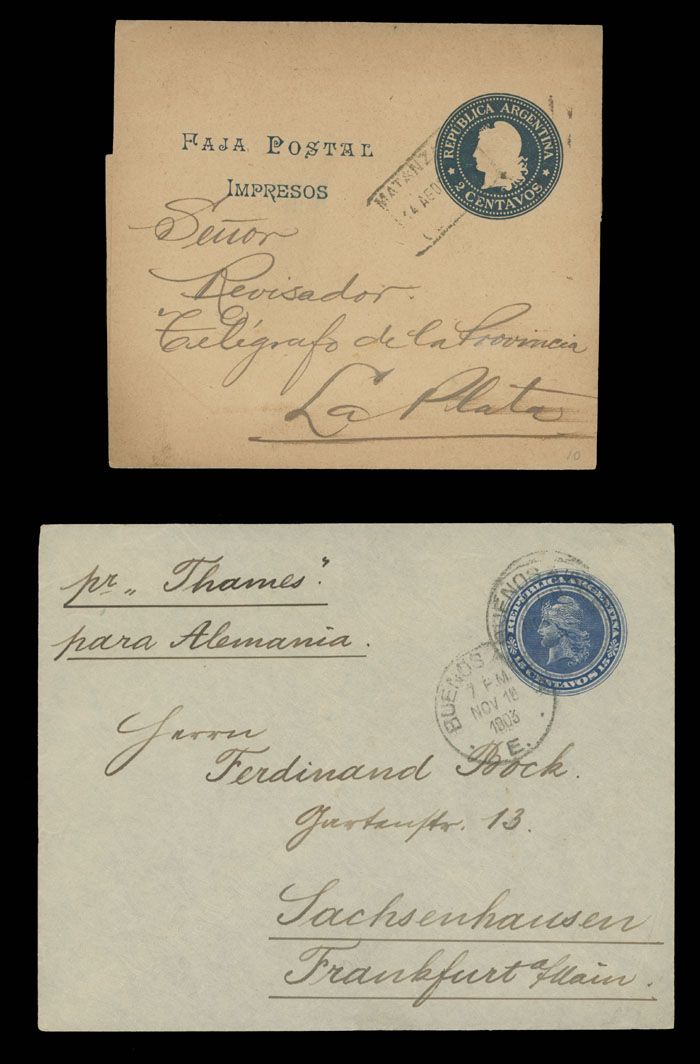 FAJA POSTAL
IMPRESOS
REPUBLICA ARGENTINA
2 CENTAVOS
14 AGO
Señor
Revisador.
Telégrafo de la Provincia
La Plata
10
pr „Thames".
para Alemania.
BUENOS
REPUBLICA ARGENTINA
15 CENTAVOS 15
BUENOS
7 P.M.
NOV 18
1903
E.
Herrn
Ferdinand Bock.
Gartenstr. 13.
Sachsenhausen
Frankfurt a/Main.